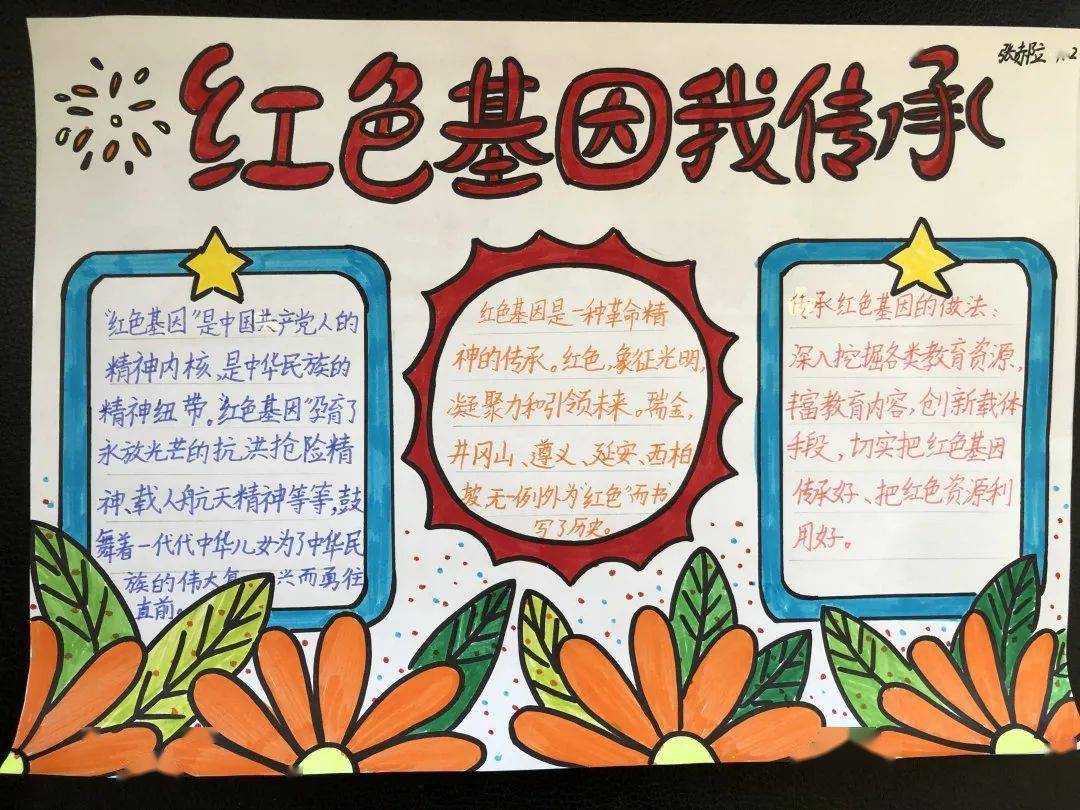 红色基因我传承
"红色基因"是中国共产党人的
精神内核,是中华民族的
精神纽带。"红色基因"孕育了
永放光芒的抗洪抢险精
神、载人航天精神等等,鼓
舞着一代代中华儿女为了中华民
族的伟大复兴而勇往
直前。
红色基因是一种革命精
神的传承。红色,象征光明,
凝聚力和引领未来。瑞金,
井冈山、遵义、延安、西柏
坡,无一例外为"红色"而书
写了历史。
传承红色基因的做法:
深入挖掘各类教育资源,
丰富教育内容,创新载体
手段,切实把红色基因
传承好、把红色资源利
用好。